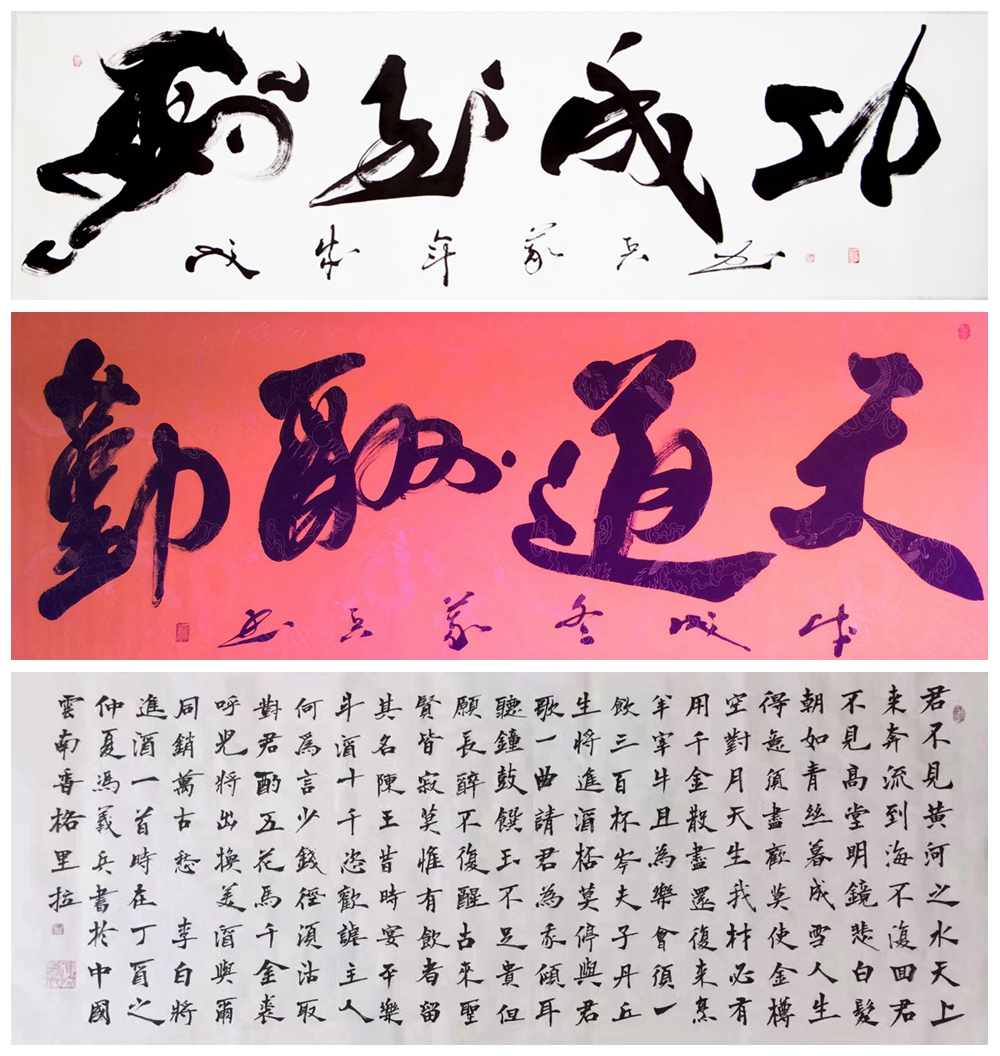 馬到成功
年義兵書
天道酬勤
冬義兵書
君不見黃河之水天上
来奔流到海不復回君
不見高堂明鏡悲白髮
朝如青絲暮成雪人生
得意須盡歡莫使金樽
空對月天生我材必有
用千金散盡還復来烹
羊宰牛且為樂會須一
飲三百杯岑夫子丹丘
生將進酒杯莫停與君
歌一曲請君為我傾耳
聽鐘鼓饌玉不足貴但
願長醉不復醒古來聖
賢皆寂莫惟有飲者留
其名陳王昔時宴平樂
斗酒十千恣歡謔主人
何為言少錢徑須沽取
對君酌五花馬千金裘
呼兒將出換美酒與爾
同銷萬古愁 李白將
進酒一首時在丁酉之
仲夏馮義兵書於中國
雲南香格里拉